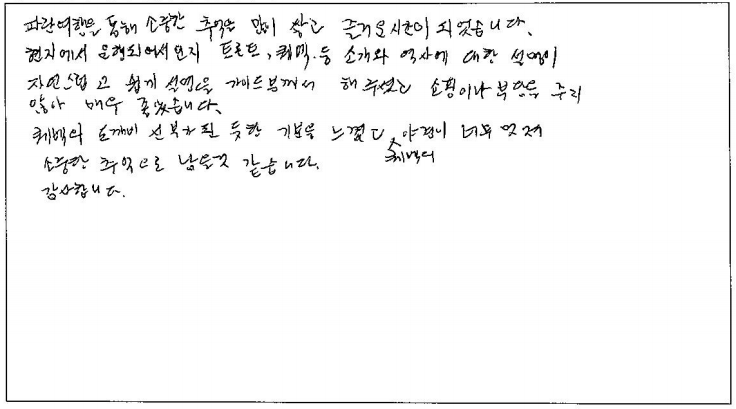 파란여행을 통해 소중한 추억을 많이 쌓고 즐거운시간이 되었습니다.
현지에서 운행되어서인지 토론토, 퀘백.등 소개와 역사에 대한 설명이
자연스럽고 쉽게 설명을 가이드분께서 해주셨고 쇼핑이나 부담을 주지
않아 매우 좋았습니다.
퀘백의 도깨비 신부가 된 듯한 기분을 느꼈고, 퀘백의 야경이 너무 멋져
소중한 추억으로 남을것 같습니다.
감사합니다.